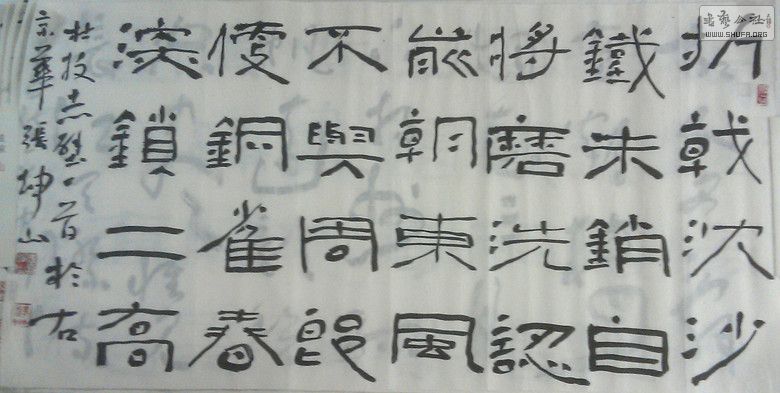 折戟沈沙
鐵未銷自
將磨洗認
前朝東風
不與周郎
便銅雀春
深鎖二高
杜牧赤壁一首於古
京華張坤山
書藝公社
WWW.SHUFA.ORG